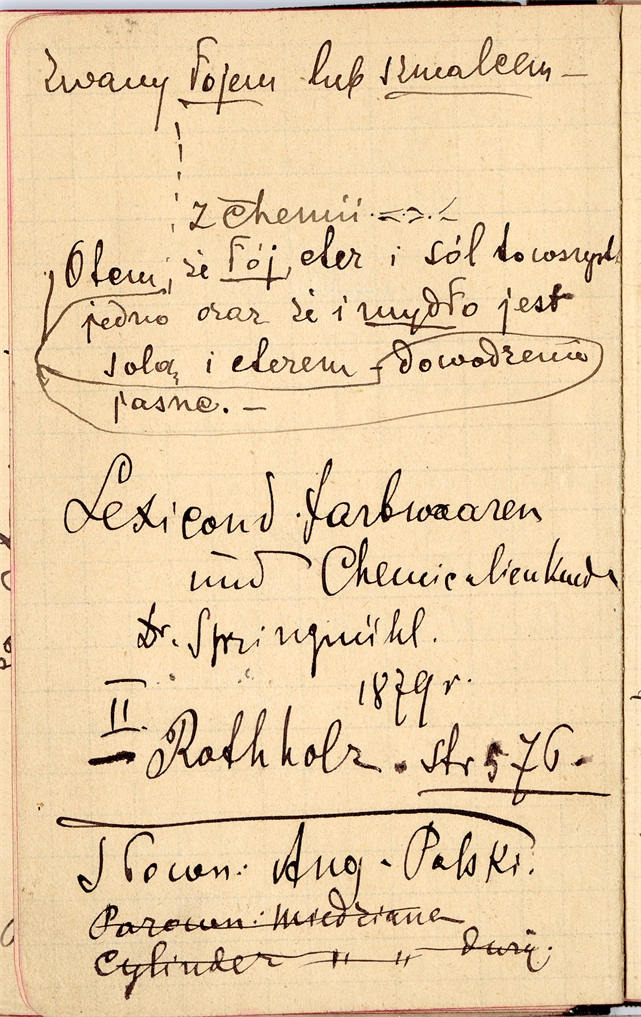 zwany łojem lub szmalcem –
z chemii
O tem, że łój, eter i sól to wszyst
jedno oraz że i mydło jest
solą i eterem – dowodzenie
jasne. –
Lexicon d. farbwaaren
und Chemicalienkunde
Dr. Springmühl.
1879 r.
II
– Rothholz . str 576.
Słown: Ang - Polski.
Parown: miedziane
Cylinder " " duży.